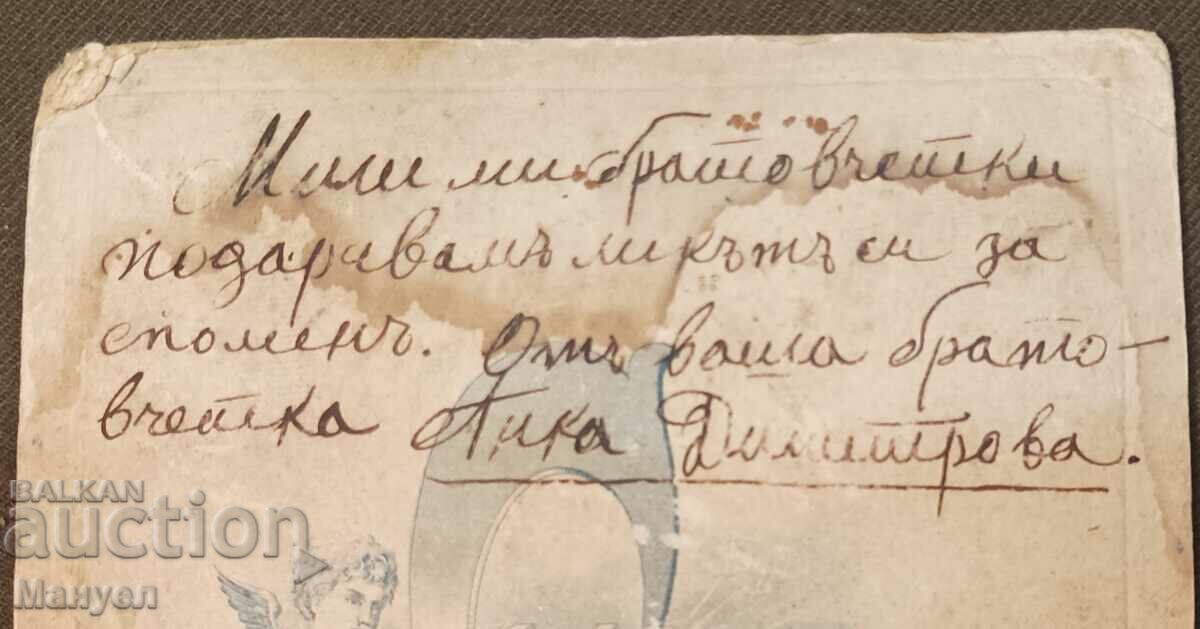 Мили ми братовчетки
подарявамъ ликътъ си за
споменъ. Отъ ваша брато-
вчетка Анка Димитрова.
BALKAN
auction
Мануел